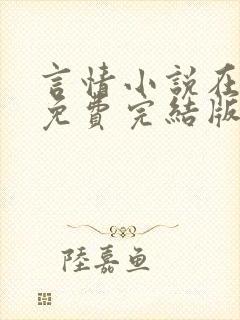 言情小說在
免費完結版
陸嘉魚